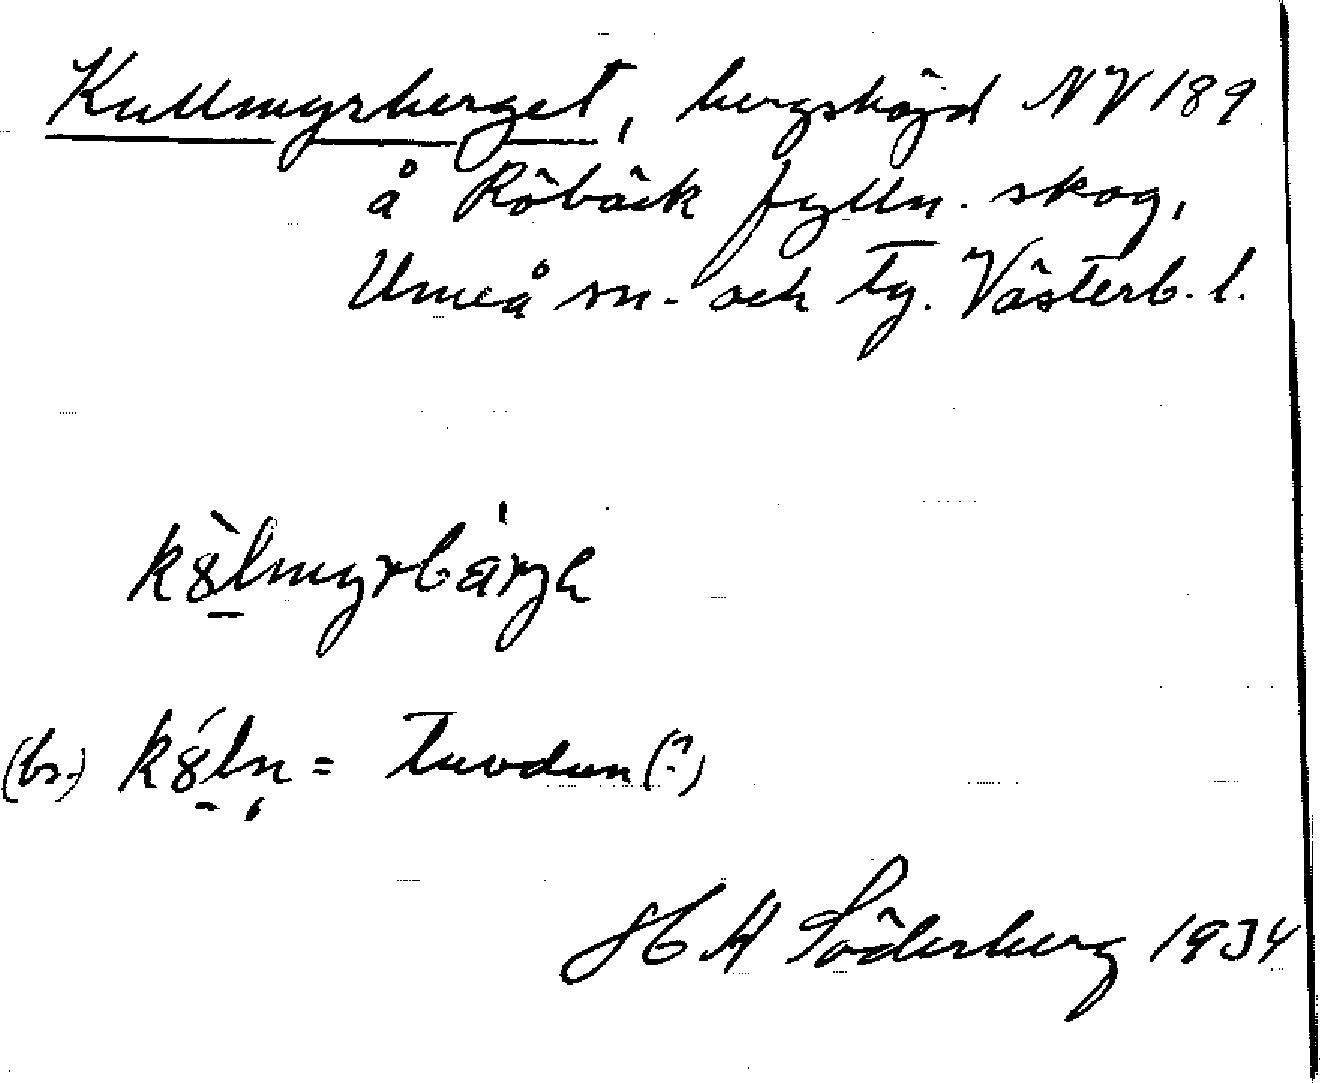 Kullmyrberget, bergshöjd NV 189
å Röbäck fylln. skog,
Umeå sn. och tg. Västerb. l.
kölmyrbärje
(bs.) köln = tuvdun (?)
H A Söderberg 1934